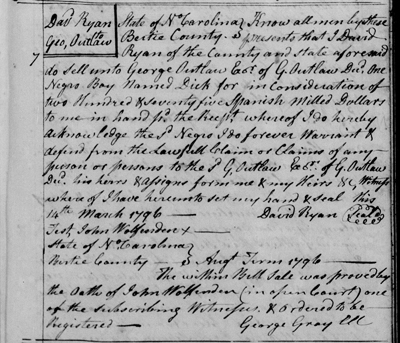 Davd Ryan
to
Geo, Outlaw
State of No Carolina } Know all men by these
Bertie County } presents that I David
Ryan of the County and State aforesaid
do Sell unto George Outlaw Exr. of G. Outlaw Dec. One
Negro Boy Named Dick for & in Consideration of
two Hundred & seventy five Spanish Milled Dollars
to me in hand pd. the Receipt whereof I do hereby
acknowledge the sd Negro I do forever Warrant &
defend from the Lawfull Claim or Claims of any
person or persons to the sd G, Outlaw Exr. of G. Outlaw
Dec. his heirs & assigns form me & my Heirs &c, Witness
whereof I have hereunto set my hand & seal this
14th March 1796 David Ryan Seal
Test, John Wolfenden
State of No Carolina
Bertie County } Augt Term 1796
The within Bill Sale was proved by
the Oath of John Wolfenden (in open Court) one
of the Subscribing Witnesses, & Ordered to be
Registered George Gray CC